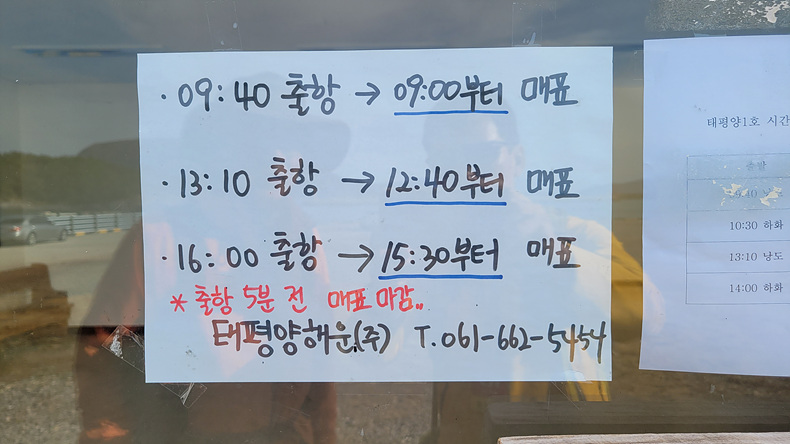 · 09:40 출항 → 09:00부터 매표
· 13:10 출항 → 12:40부터 매표
· 16:00 출항 → 15:30부터 매표
* 출항 5분 전 매표 마감..
태평양해운(주) T. 061-662-5454
태평양1호 시간
출발
10:30 하화
13:10 낭도
14:00 하화